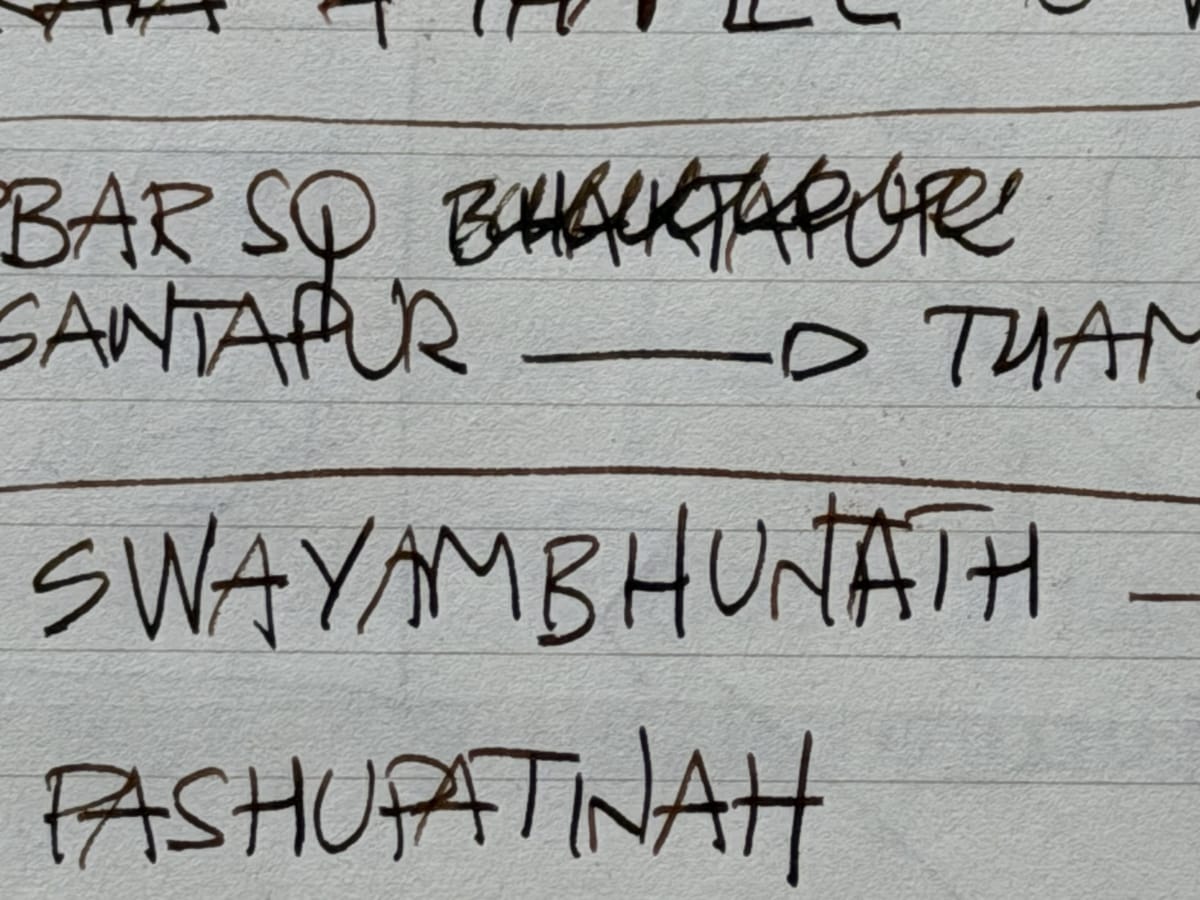 BAR SQ BHAKTAPUR
SANTAPUR → THAM
SWAYAMBHUNATH —
PASHUPATINAH